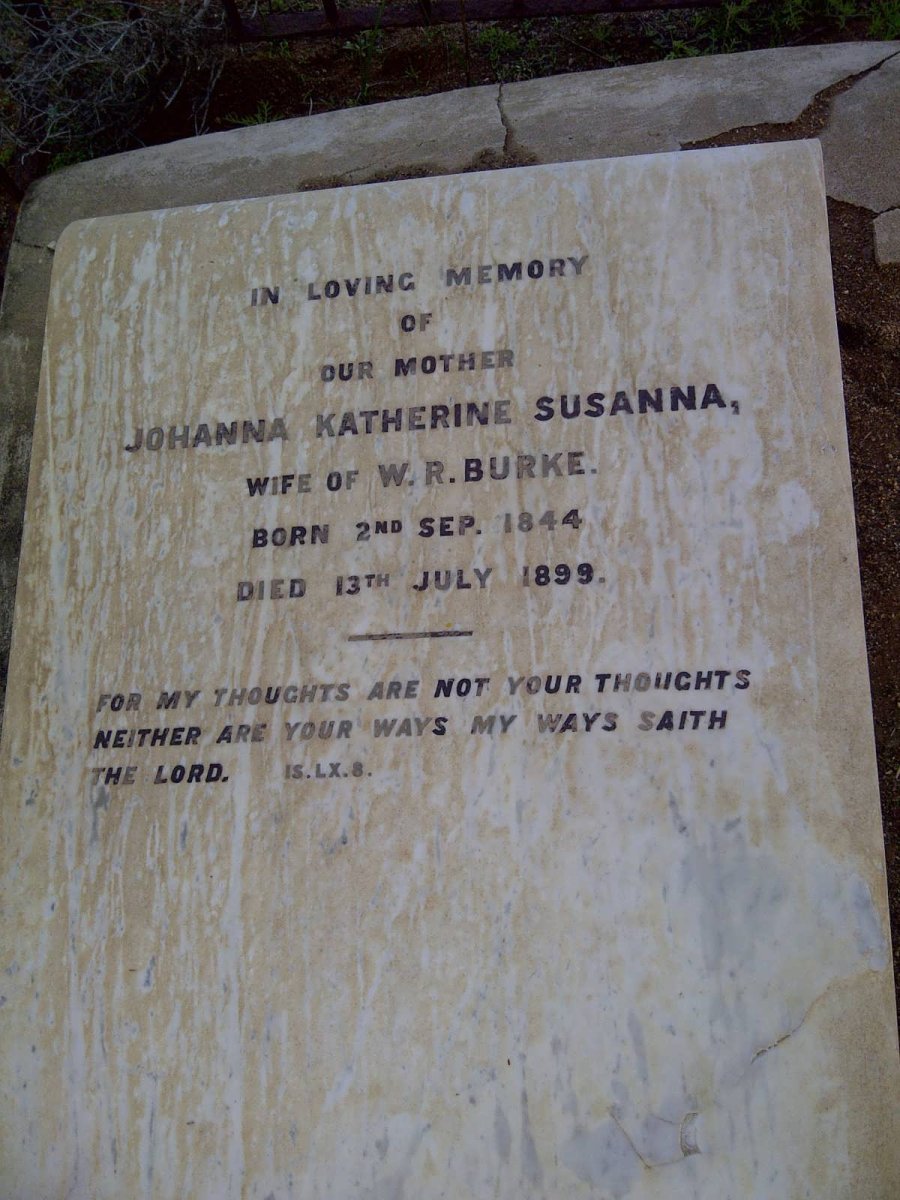 IN LOVING MEMORY
OF
OUR MOTHER
JOHANNA KATHERINE SUSANNA,
WIFE OF W.R.BURKE.
BORN 2ND SEP. 1844
DIED 13TH JULY 1899.
FOR MY THOUGHTS ARE NOT YOUR THOUGHTS
NEITHER ARE YOUR WAYS MY WAYS SAITH
THE LORD. IS.LX.8.